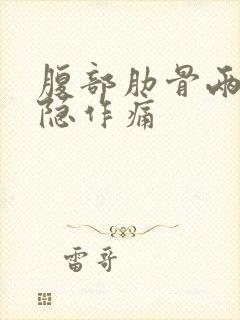 腹部肋骨两
隐作痛
雷哥